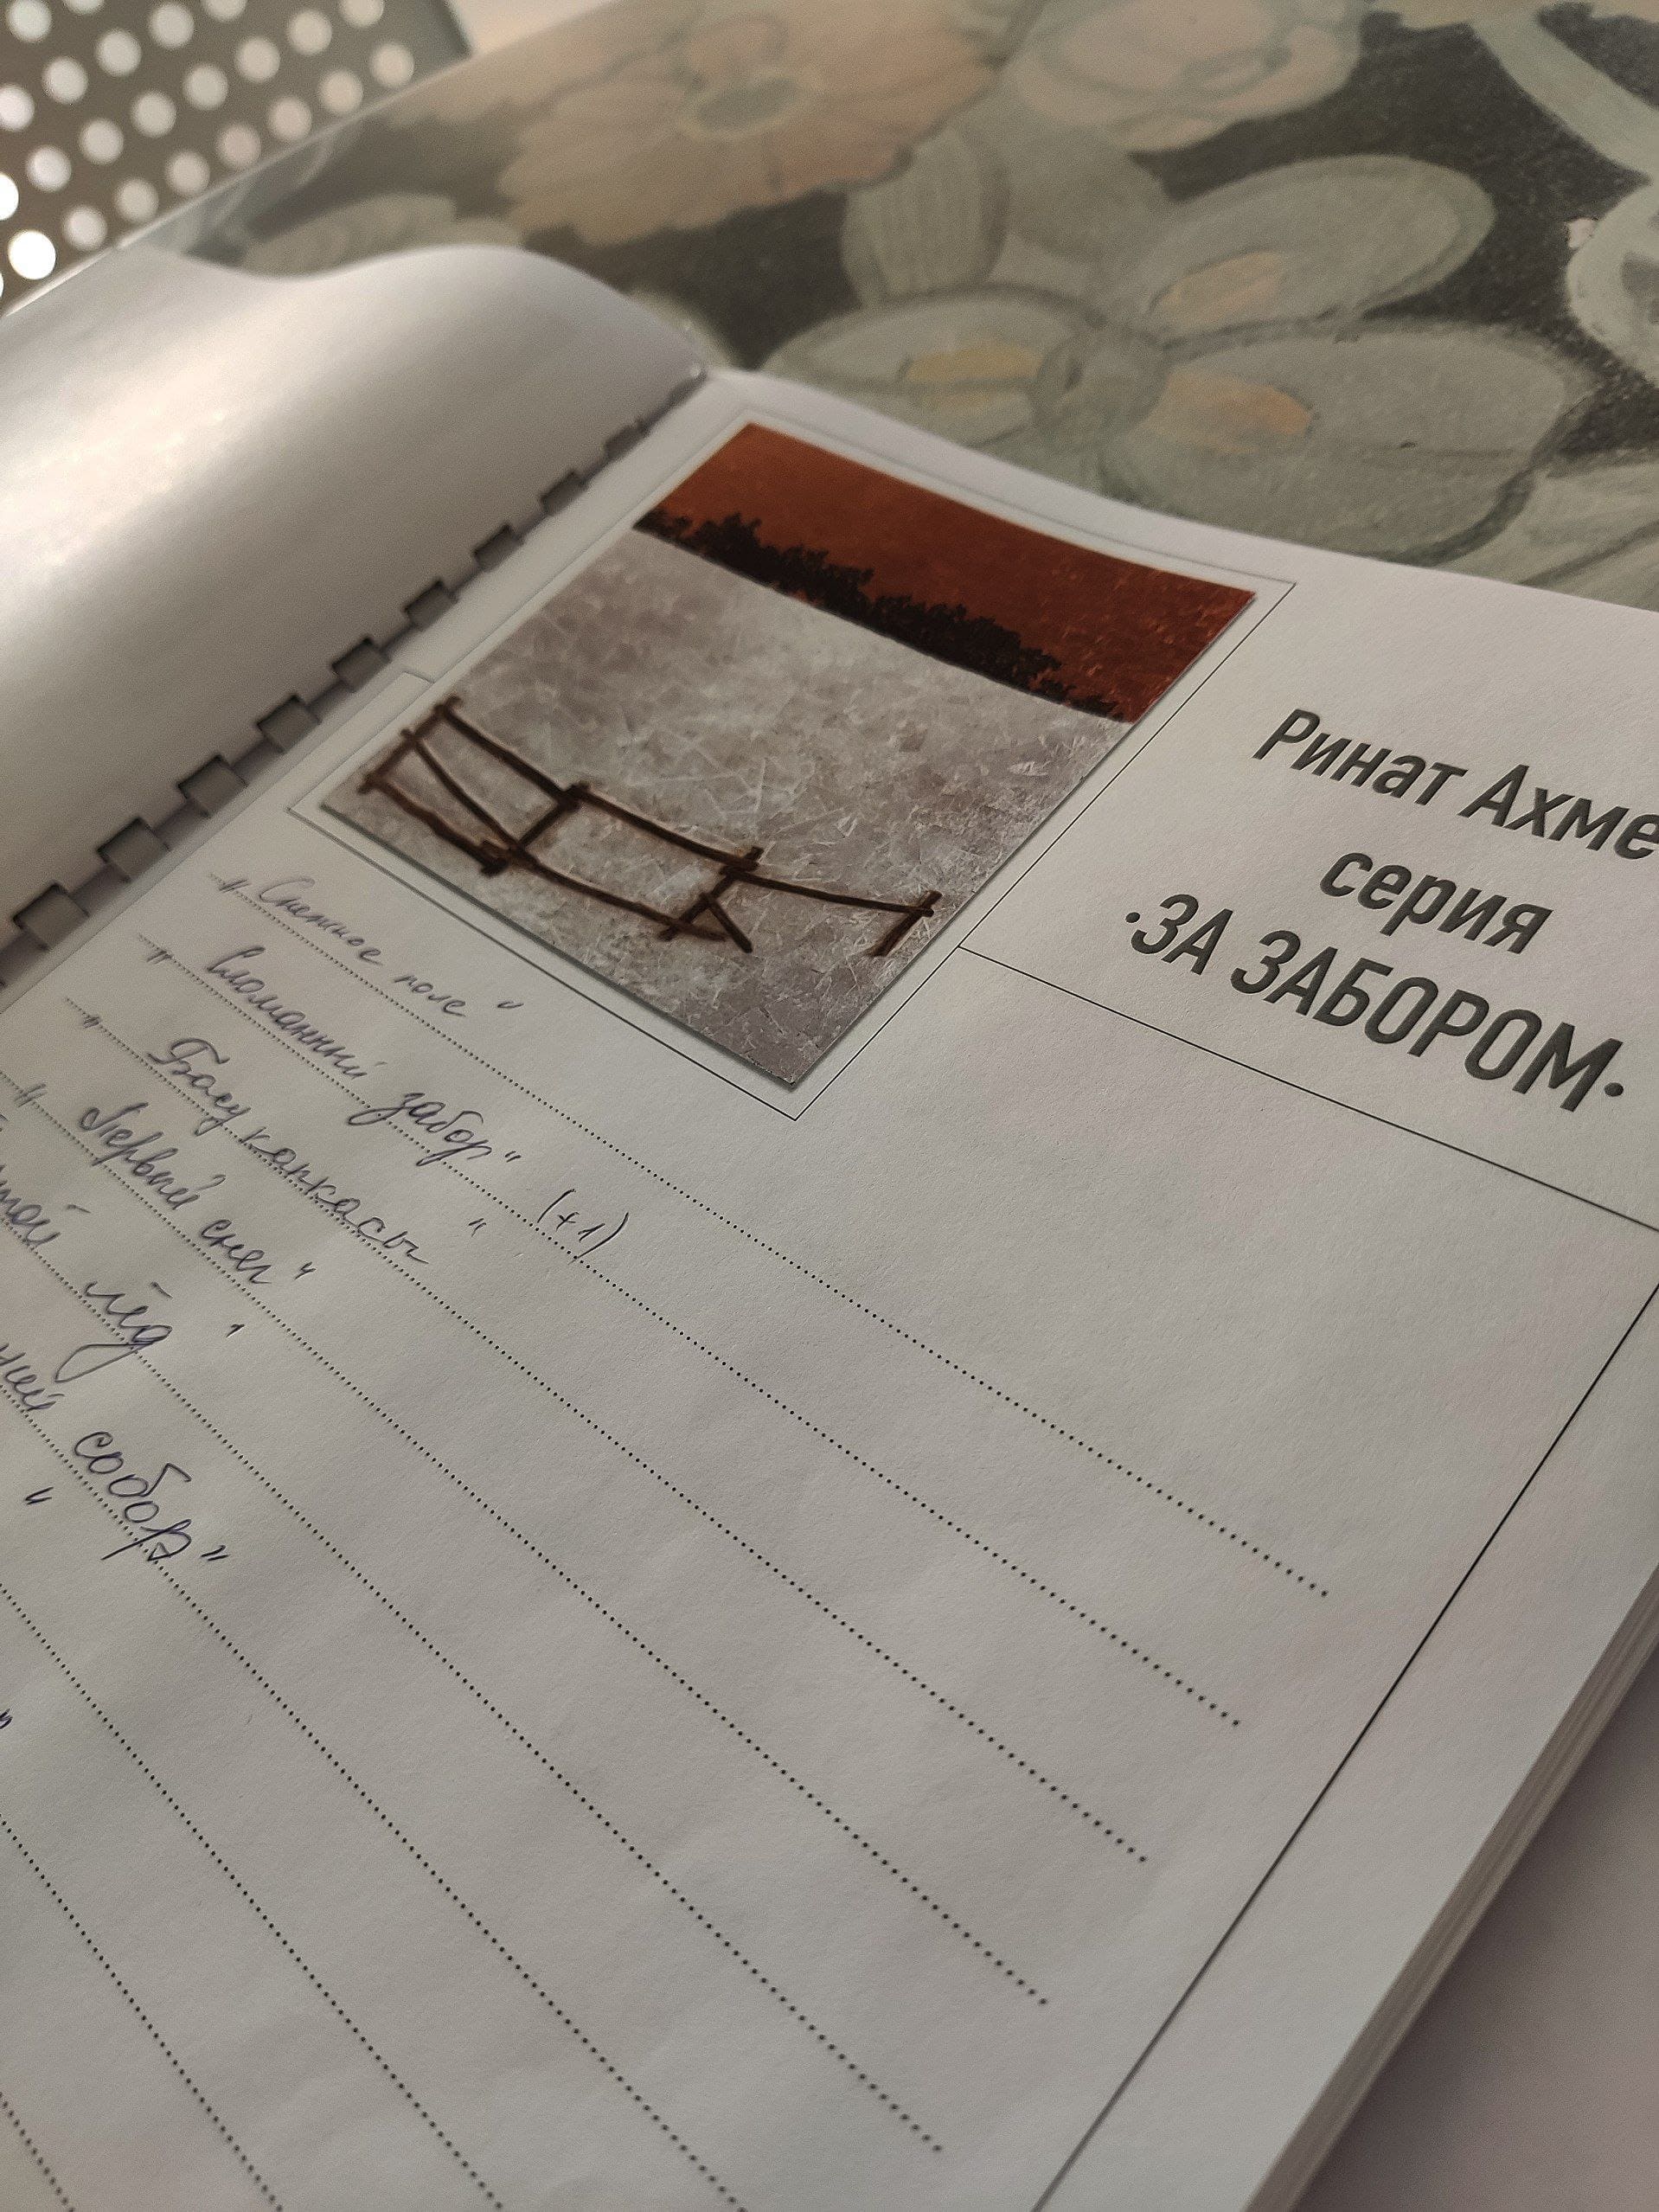 Ринат Ахме
серия
·ЗА ЗАБОРОМ·
"Снежное поле"
"Сломанный забор"
" каркасы" (+1)
"Первый снег"
той лёд"
ний собор"
"